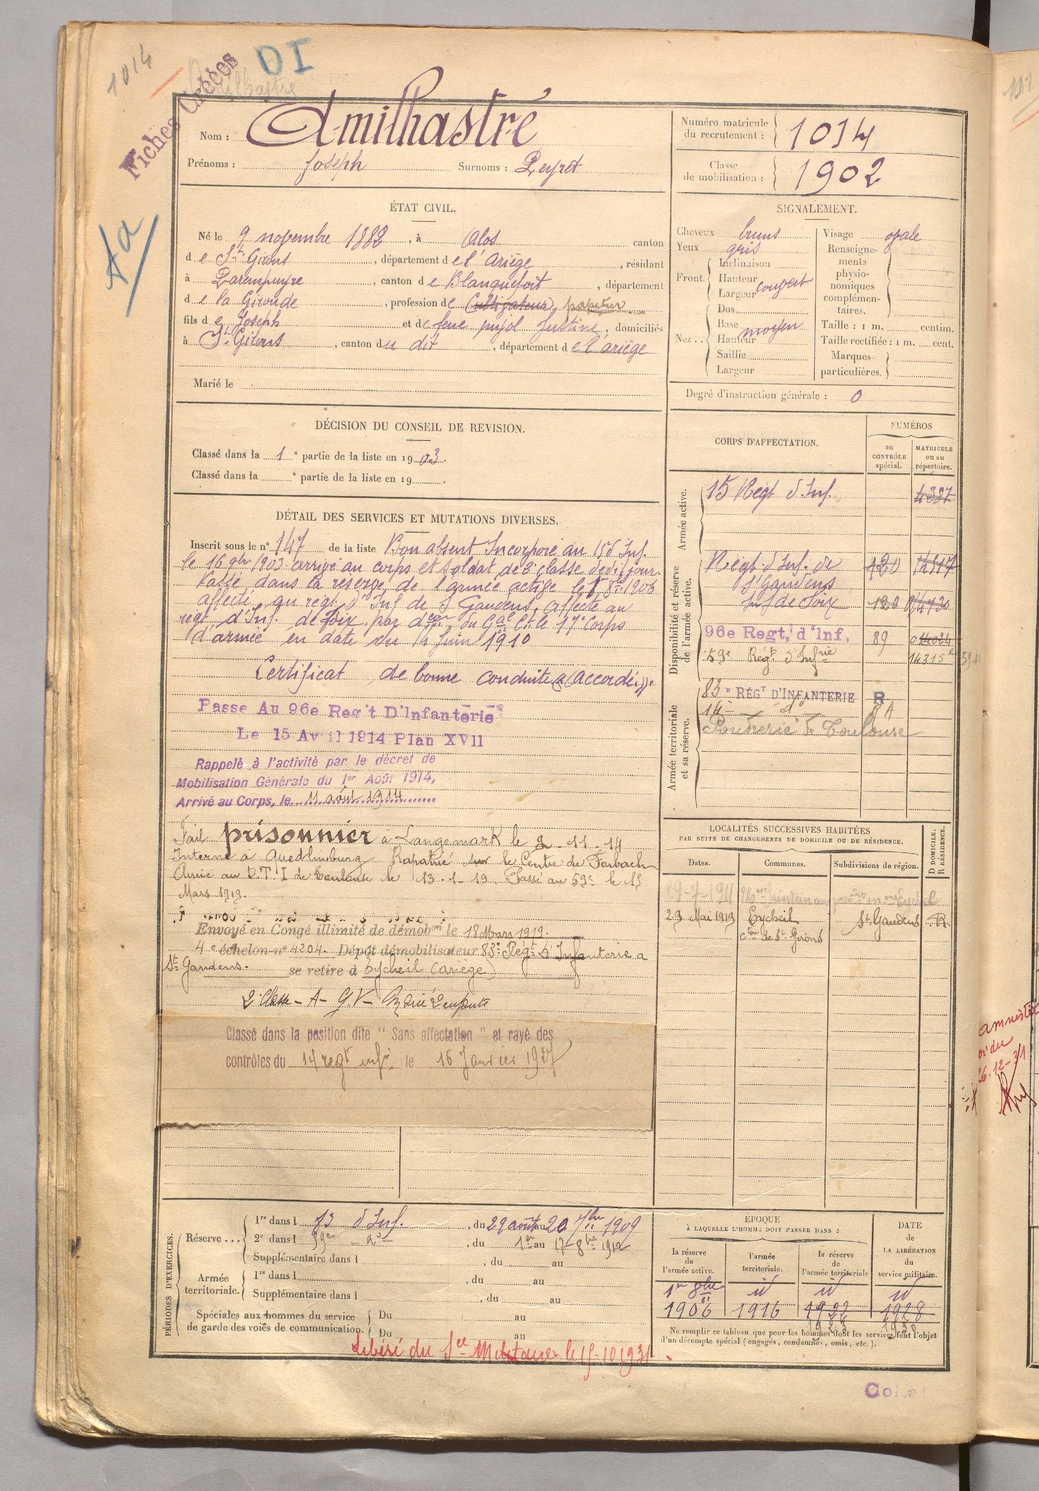 1014
DI
Fiches Créées
Aa
Nom : Amilhastre
Prénoms : Joseph Surnoms : Peyret
Numéro matricule du recrutement : 1014
Classe de mobilisation : 1902
ÉTAT CIVIL.
Né le 9 novembre 1882, à Alos canton
d e St Girons, département de l'Ariège, résidant
à Parempuyre, canton de Blanquefort, département
d e la Gironde, profession de Cultivateur, papetier
fils d e Joseph et de feue pujol Justine, domiciliés
à St Girons, canton du dit, département de l'ariège
Marié le
SIGNALEMENT.
Cheveux bruns
Yeux gris
Front. Inclinaison
Hauteur couvert
Largeur
Nez. Dos
Base moyen
Hauteur
Saillie
Largeur
Visage ovale
Renseignements physionomiques complémentaires.
Taille : 1 m. centim.
Taille rectifiée : 1 m. cent.
Marques particulières.
Degré d'instruction générale : 0
DÉCISION DU CONSEIL DE REVISION.
Classé dans la 1e partie de la liste en 1903.
Classé dans la e partie de la liste en 19
DÉTAIL DES SERVICES ET MUTATIONS DIVERSES.
Inscrit sous le n° 147 de la liste Bon absent Incorporé au 15 d'Inf.
le 16 9bre 1903 arrivé au corps et soldat de 2e classe dedit jour
Passé dans la réserve de l'armée active le 1 8bre 1906
affecté au regt d'Inf de St Gaudens, affecté au
regt d'Inf. de Foix par don du Gal Ct le 17e Corps
d'armée en date du 14 Juin 1910
Certificat de bonne conduite "accordé".
Passe Au 96e Reg't D'Infanterie
Le 15 Avril 1914 Plan XVII
Rappelé à l'activité par le décret de
Mobilisation Générale du 1er Août 1914,
Arrivé au Corps, le 11 août 1914
Fait prisonnier à Langemark le 2-11-14
Interné à Quedlinburg Rapatrié sur le Centre de Farbach
Arrivé au D.T.I de Toulouse le 13-1-19 Passé au 59e le 15
Mars 1919.
Envoyé en Congé illimité de démobon le 18 Mars 1919.
4e échelon n° 4204. Dépôt démobilisateur 83e Regt d'Infanterie à
St Gaudens. se retire à Eycheil (ariège)
Classé dans la position dite "Sans affectation" et rayé des
contrôles du 14 regt inf. le 16 Janvier 1927
CORPS D'AFFECTATION.
NUMÉROS
AU CONTRÔLE spécial.
MATRICULE ou au répertoire.
Armée active.
15 Regt d'Inf. 4387
Disponibilité et réserve de l'armée active.
Regt d'Inf. de St Gaudens 420
Inf de Foix 120
96e Regt, d'Inf, 89
59e Regt d'Infrie 14315
Armée territoriale et sa réserve.
83e REGT D'INFANTERIE R
14e do
Poudrerie de Toulouse
LOCALITÉS SUCCESSIVES HABITÉES
PAR SUITE DE CHANGEMENTS DE DOMICILE OU DE RÉSIDENCE.
Dates. Communes. Subdivisions de région. D DOMICILE. R RÉSIDENCE.
29 Mai 1919 Eycheil St Gaudens R
con de St Girons
amnistié
loi du
26.12-31
PÉRIODES D'EXERCICES.
Réserve... 1re dans l 83 d'Inf., du 29 août au 20 7bre 1909
2e dans l 59e do, du 1er au 17 8bre 1912
Supplémentaire dans l, du au
Armée territoriale. 1re dans l, du au
Supplémentaire dans l, du au
Spéciales aux hommes du service de garde des voies de communication. Du au
Du au
Libéré du Sce Militaire le 15-10-1931
ÉPOQUE
À LAQUELLE L'HOMME DOIT PASSER DANS :
la réserve de l'armée active. l'armée territoriale. la réserve de l'armée territoriale
DATE DE LA LIBÉRATION du service militaire.
1er 8bre 1906 id 1916 id 1922 id 1928
Ne remplir ce tableau que pour les hommes dont les services font l'objet
d'un décompte spécial (engagés, condamnés, omis, etc.).